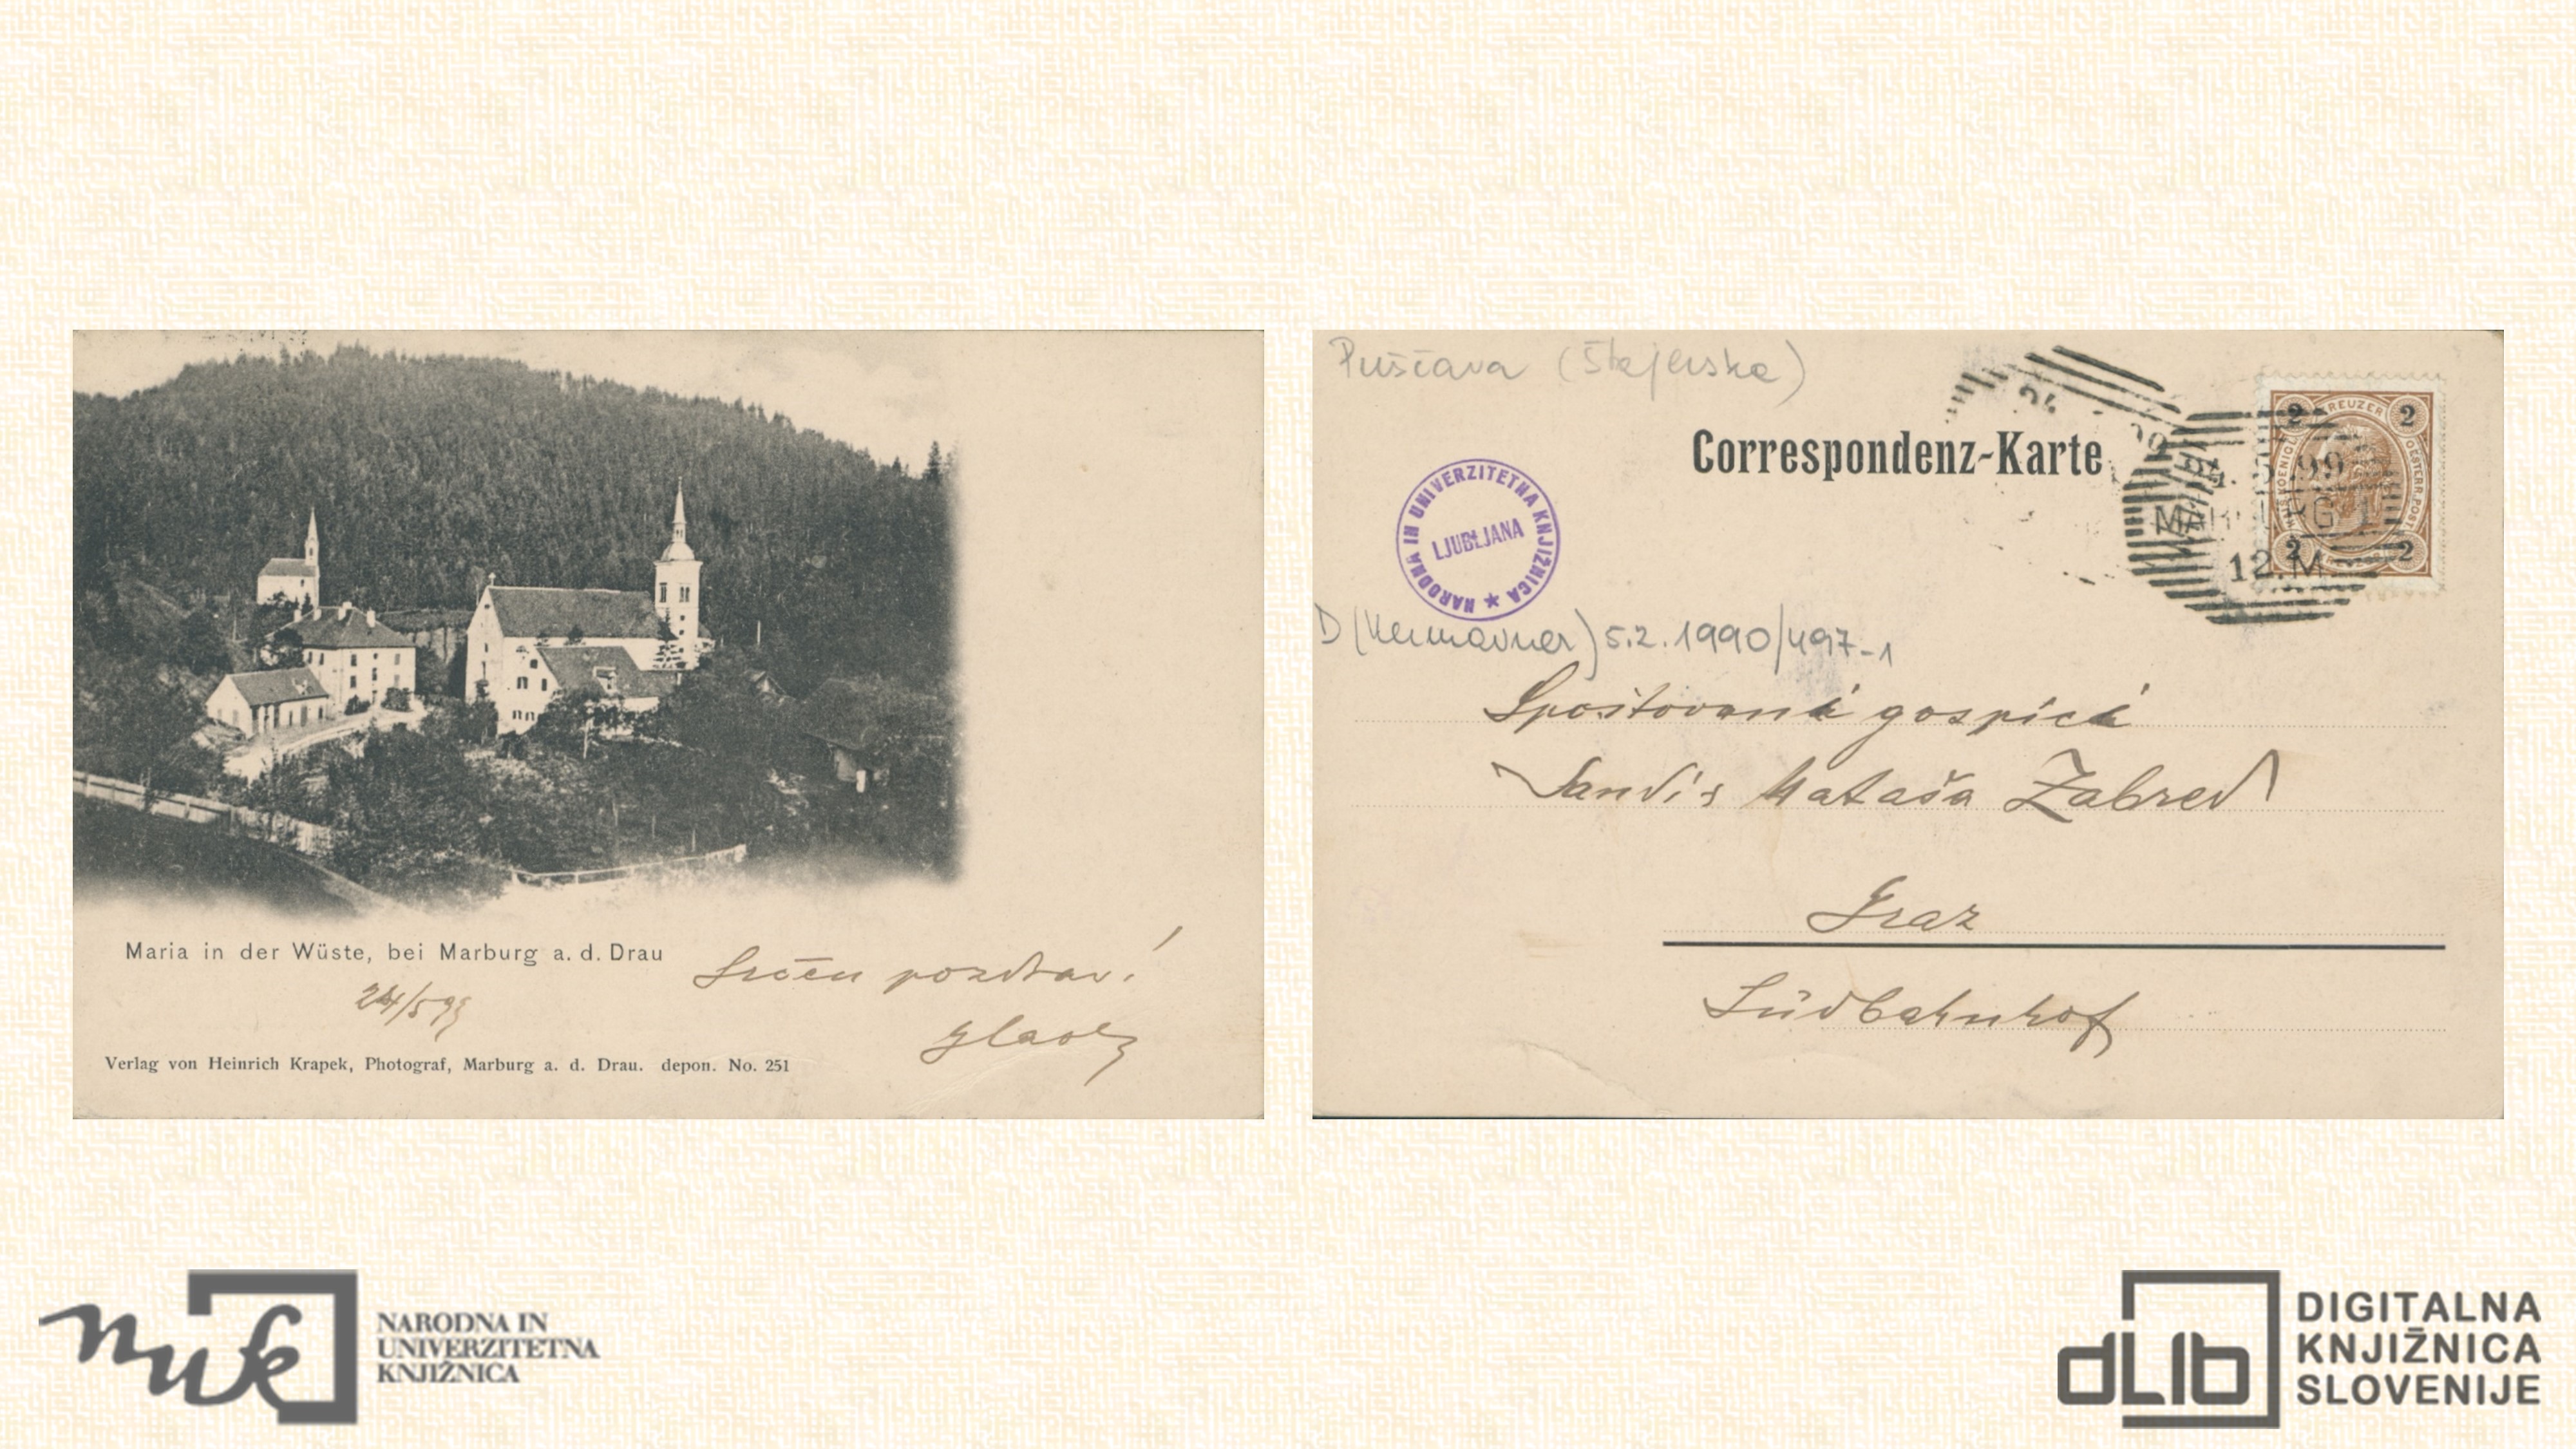 Maria in der Wüste, bei Marburg a. d. Drau
Srčen pozdrav!
24/5 99
Verlag von Heinrich Krapek, Photograf, Marburg a. d. Drau. depon. No. 251
Puščava (Štajerska)
Correspondenz-Karte
NARODNA IN UNIVERZITETNA KNJIŽNICA ★
LJUBLJANA
2 KREUZER 2
24. 5. 99
MARBURG 1
12. M
2 2
D (Kermavner) 5.2.1990/497-1
Spoštovana gospica
Zabred
Graz
Südbahnhof
nuk
NARODNA IN
UNIVERZITETNA
KNJIŽNICA
dLib
DIGITALNA
KNJIŽNICA
SLOVENIJE